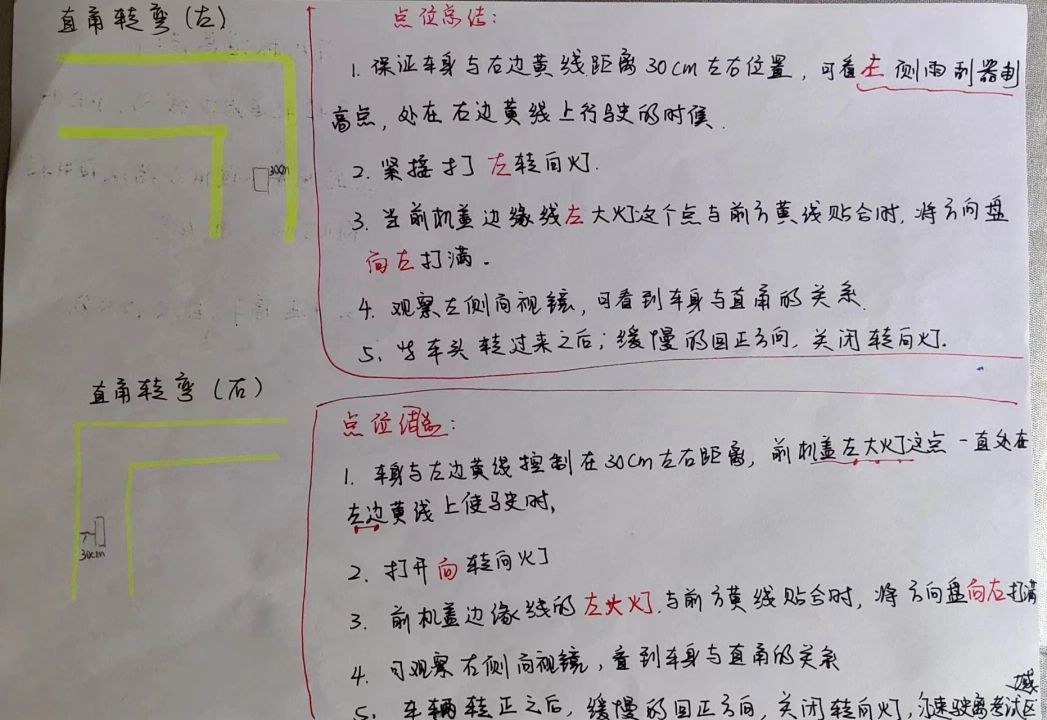 直角转弯(左)
30cm
点位总结:
1. 保证车身与右边黄线距离30cm左右位置, 可看左侧雨刮器制
高点, 处在右边黄线上行驶的时候.
2. 紧接打左转向灯.
3. 当前机盖边缘线左大灯这个点与前方黄线贴合时, 将方向盘
向左打满.
4. 观察左侧后视镜, 可看到车身与直角的关系.
5. 当车头转过来之后; 缓慢的回正方向, 关闭转向灯.
直角转弯(右)
30cm
点位:
1. 车身与左边黄线控制在30cm左右距离, 前机盖左大灯这点一直处在
左边黄线上使驶时,
2. 打开向转向灯
3. 前机盖边缘线的左大灯.与前方黄线贴合时, 将方向盘向右打满
4. 可观察右侧后视镜, 看到车身与直角的关系
5. 车辆转正之后, 缓慢的回正方向, 关闭转向灯, 匀速驶离考试区域